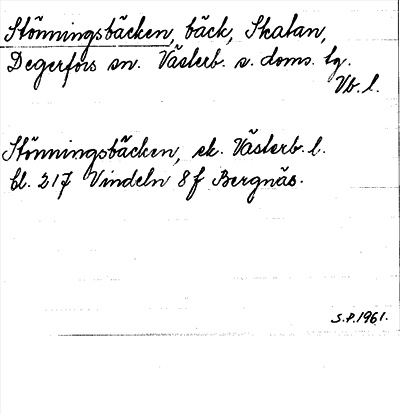 Stönningsbäcken, bäck, Skatan,
Degerfors sn. Västerb. s. doms. tg.
Vb. l.
Stönningsbäcken, ek. Västerb. l.
bl. 217 Vindeln 8 f Bergnäs.
S.P. 1961.